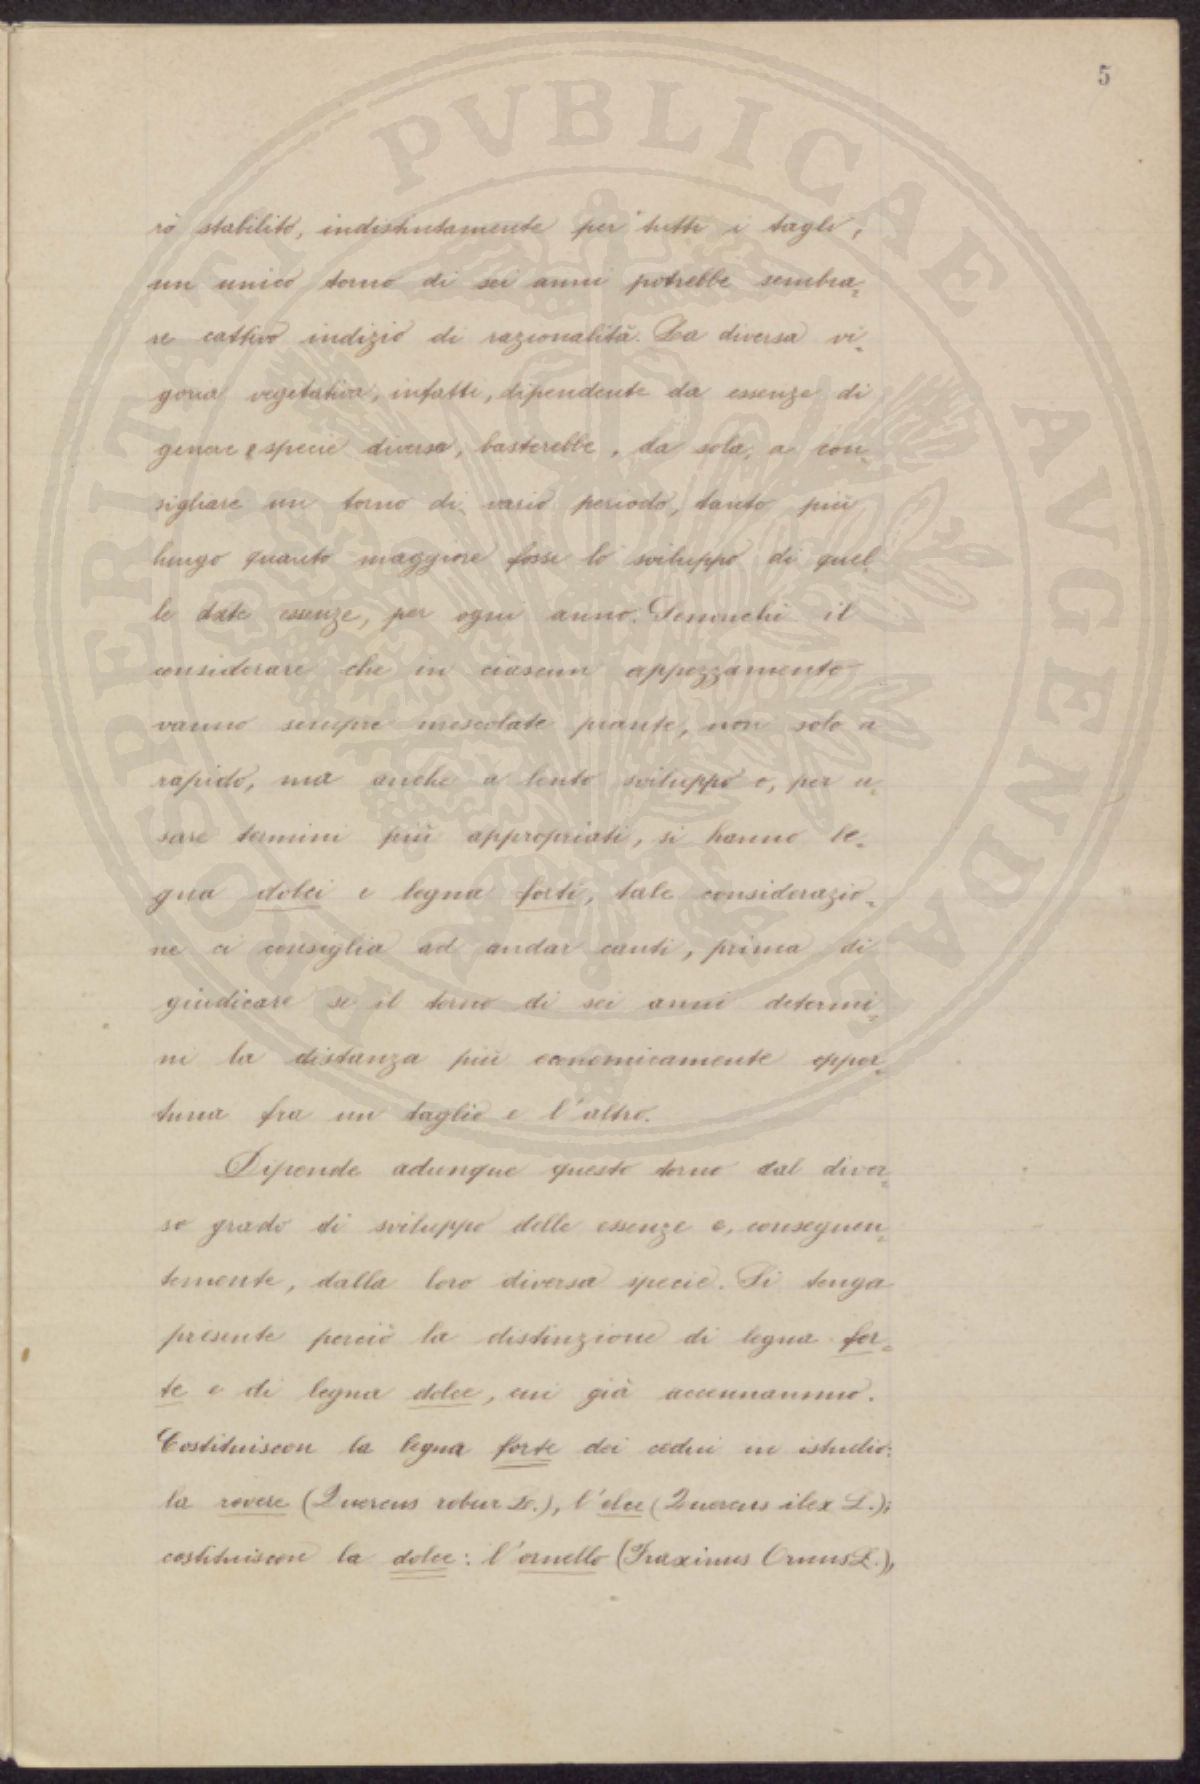 5
rò stabilito, indistintamente per tutti i tagli,
un unico torno di sei anni potrebbe sembra=
re cattivo indizio di razionalità. La diversa vi=
goria vegetativa, infatti, dipendente da essenze di
genere e specie diverse, basterebbe, da sola, a con=
sigliare un torno di vario periodo, tanto più
lungo quanto maggiore fosse lo sviluppo di quel=
le date essenze, per ogni anno. Sennonchè il
considerare che in ciascun appezzamento
vanno sempre mescolate piante, non solo a
rapido, ma anche a lento sviluppo e, per u=
sare termini più appropriati, si hanno le=
gna dolci e legna forti, tale considerazio=
ne ci consiglia ad andar cauti, prima di
giudicare se il torno di sei anni determi=
ni la distanza più economicamente oppor=
tuna fra un taglio e l'altro.
Dipende adunque questo torno dal diver=
so grado di sviluppo delle essenze e, conseguen=
temente, dalla loro diversa specie. Si tenga
presente perciò la distinzione di legna for=
te e di legna dolce, cui già accennammo.
Costituiscon la legna forte dei cedui in istudio:
la rovere (Quercus robur L.), l'elce (Quercus ilex L.);
costituiscon la dolce: l'ornello (Fraxinus Ornus L.),
PROSPERITATI PVBLICAE AVGENDAE